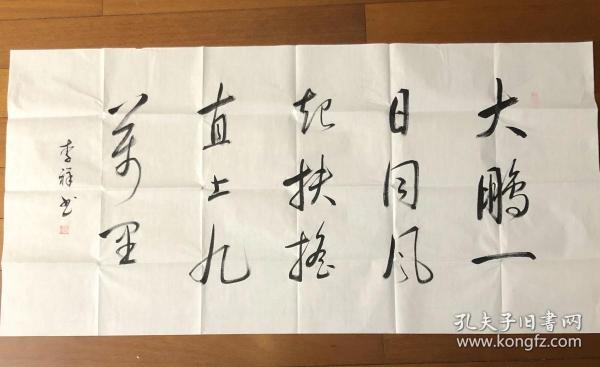 大鹏一
日同风
起扶摇
直上九
萬里
李祥书
孔夫子旧書网
www.kongfz.com